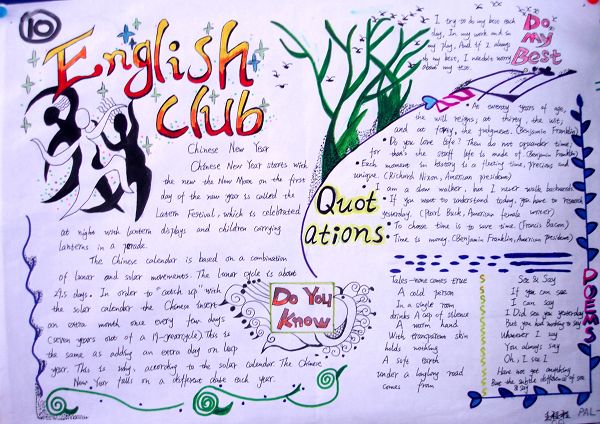 10
English
Club
Chinese New Year
Chinese New Year starts with
the new the New Moon on the first
day of the new year is called the
Latern Festival, which is celebrated
at night with lantern displays and children carrying
lanterns in a parade.
The Chinese calendar is based on a combination
of lunar and solar movements. The lunar cycle is about
29.5 days. In order to "catch up" with
the solar calendar the Chinese insert
an extra month once every few days
(seven years out of a 19-yearcycle). This is
the same as adding an extra day on leap
year. This is why, according to the solar calendar. The Chinese
New Year falls on a different date each year.
Do You
Know
I try to do my best each
day, In my work and in
my play, And if I always
do my best, I needn't worry
about my test.
Do
My
Best
Quot
ations:
At twenty years of age,
the will reigns; at thirty, the wit;
and at forty, the judgment. (Benjamin Franklin)
Do you love life? Then do not squander time,
for that's the stuff life is made of. (Benjamin Franklin)
Each moment in history is a fleeting time, precious and
unique. (Richard Nixon, American president)
I am a slow walker, but I never walk backwards.
If you want to understand today, you have to research
yesterday. (Pearl Buck, American female writer)
To choose time is to save time. (Francis Bacon)
Time is money. (Benjamin Franklin, American president)
POEMS
Tales-none comes true
A cold person
In a single room
drinks A cup of silence
A warm hand
With transparem skin
holds nothing
A safe earth
under a laughing road
comes from
See & Say
If you can see
I can say
I Did see you yesterday
But you had nothing to say
Whatever I say
You always say
Oh, I see!
Have not got anything
But the subtle difference of see
& say
PAL-